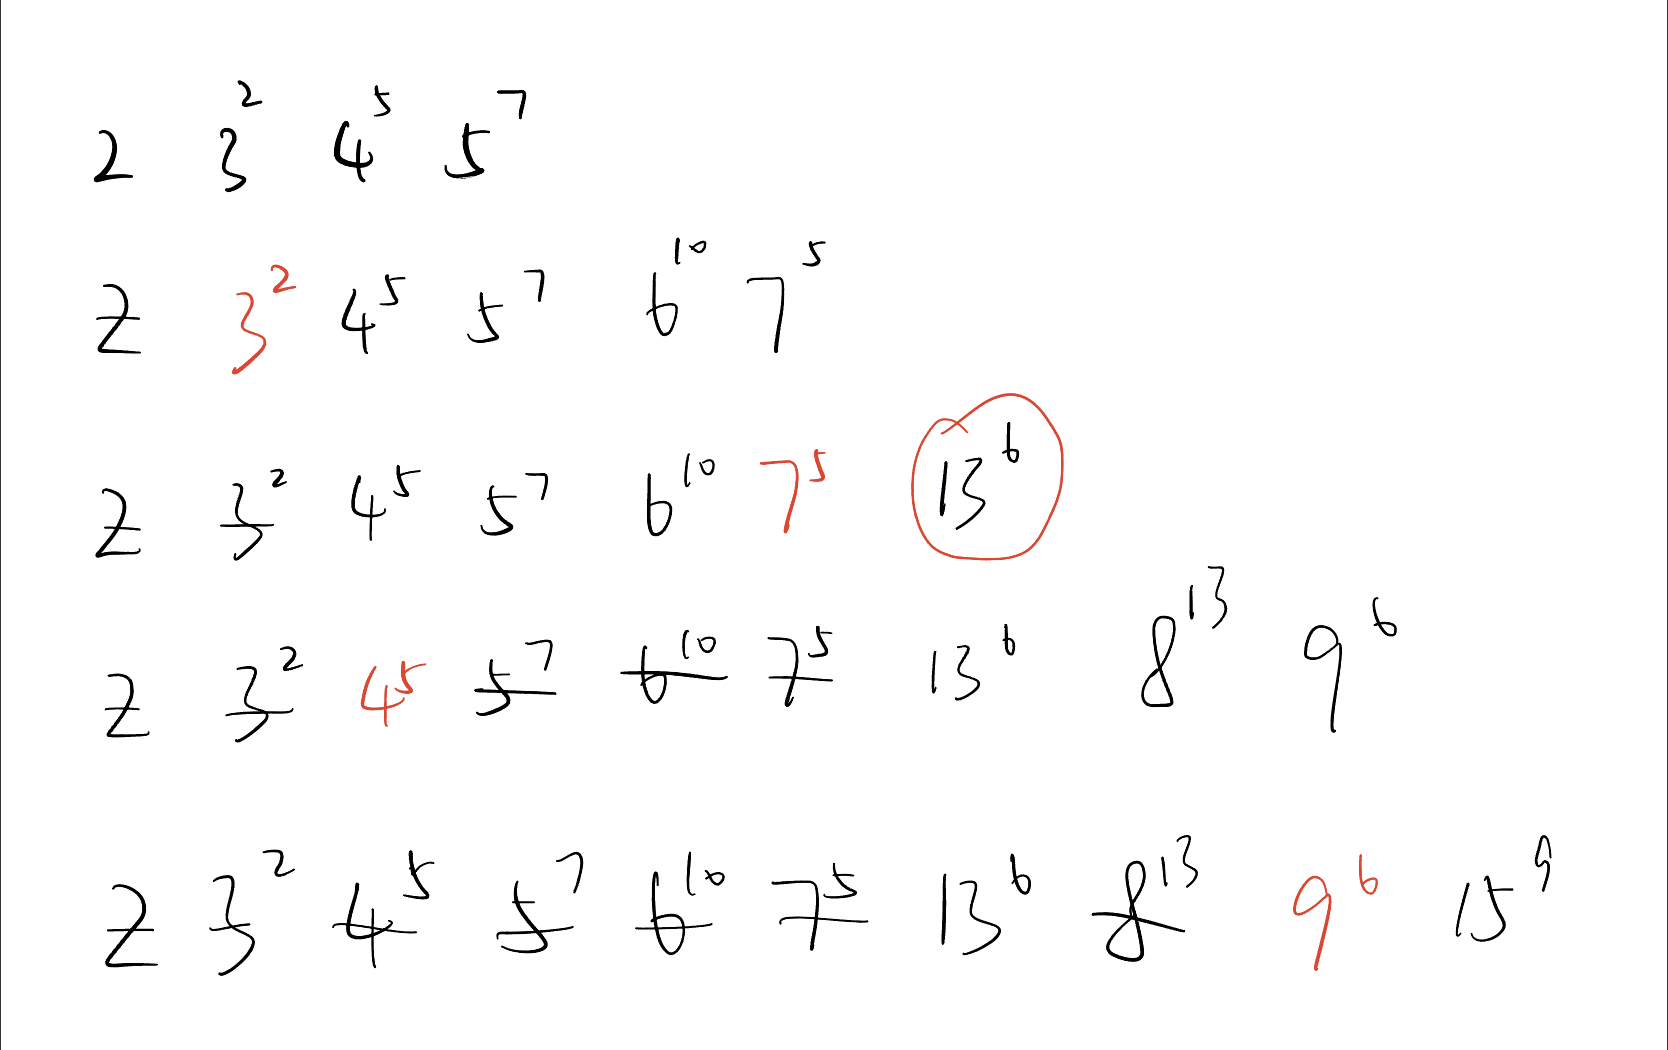 2 3² 4⁵ 5⁷
2 3² 4⁵ 5⁷ 6¹⁰ 7⁵
2 3² 4⁵ 5⁷ 6¹⁰ 7⁵ 13⁶
2 3² 4⁵ 5⁷ 6¹⁰ 7⁵ 13⁶ 8¹³ 9⁶
2 3² 4⁵ 5⁷ 6¹⁰ 7⁵ 13⁶ 8¹³ 9⁶ 15⁹